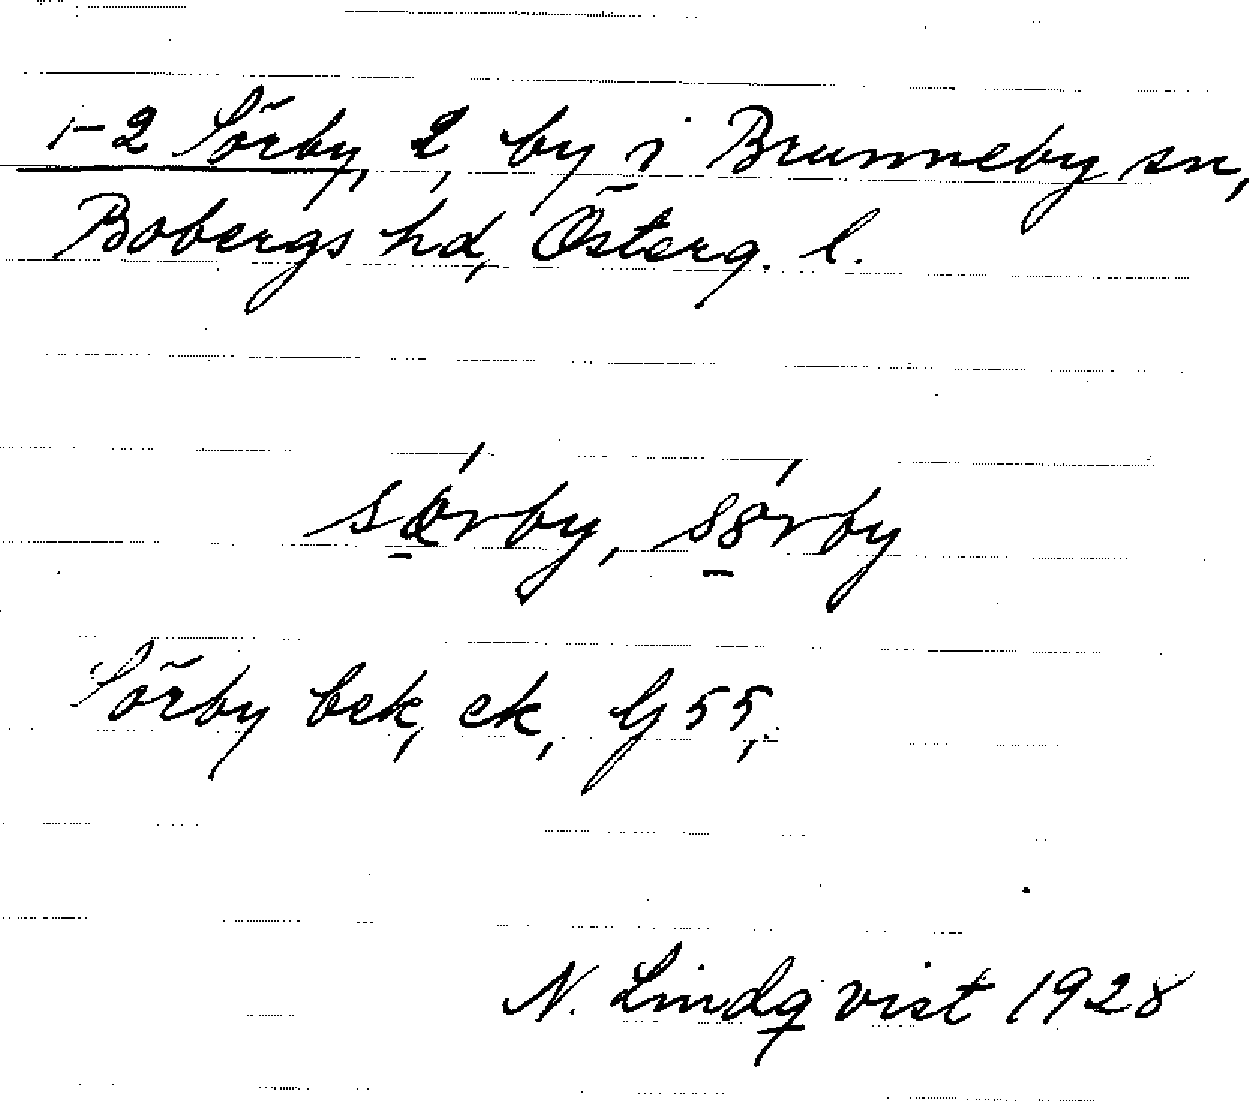 1-2 Sörby, 2, by i Brunneby sn,
Bobergs hd, Österg. l.
sörby, sörby
Sörby bek, ek, G 55,
N. Lindqvist 1928